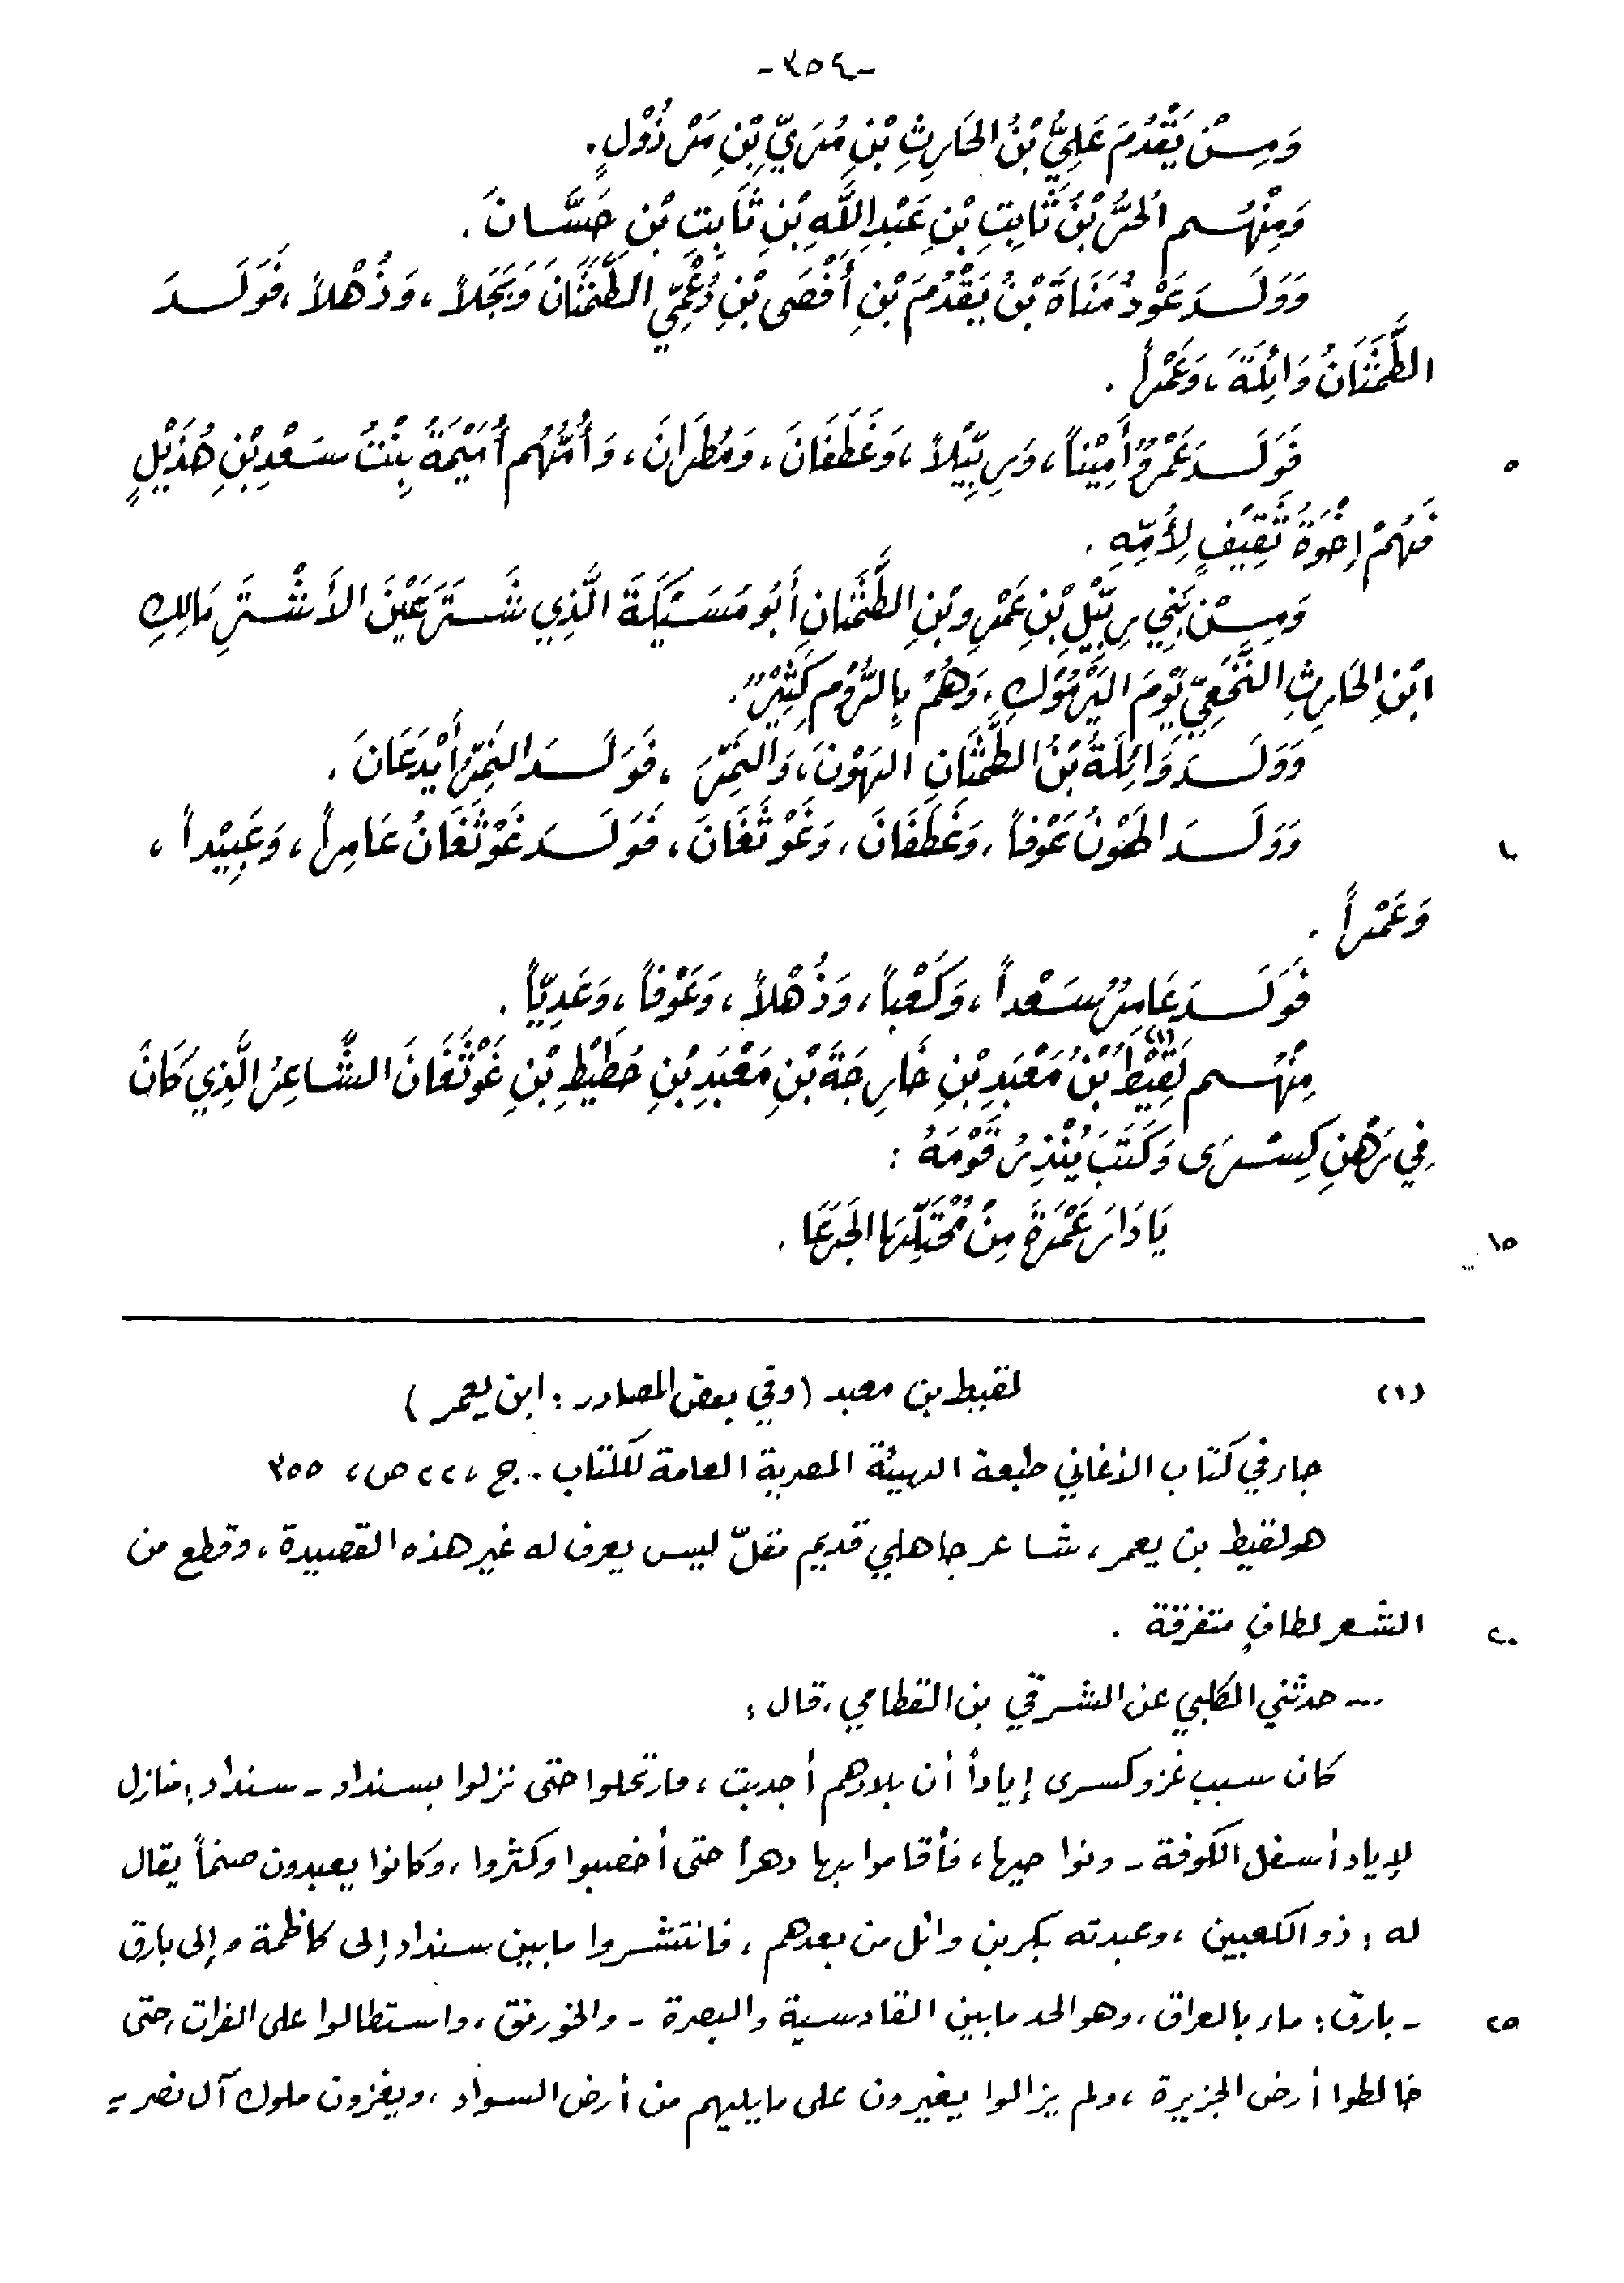 -٣٥٤-
وَمِنْ يَقْدُمَ عَلِيُّ بْنُ الحَارِثِ بْنِ مُرَيِّ بْنِ مَرْذُوْلٍ.
وَمِنْهُم الحُرُّ بْنُ ثَابِتِ بْنِ عَبْدِ اللَّهِ بْنِ ثَابِتِ بْنِ حَسَّانَ.
وَوَلَدَ عَوْذُ مَنَاةَ بْنُ يَقْدُمَ بْنِ أَفْصَى بْنِ دُعْمِيّ الطَّمَثَانَ وَبَجَلاً، وَذُهْلاً، فَوَلَدَ
الطَّمَثَانُ وَائِلَةَ، وَعَمْراً.
٥ فَوَلَدَ عَمْرٌو أَمِيْناً، وَرِبِّيْلاً، وَغَطَفَانَ، وَمُطَرانَ، وَأُمُّهُم أُمَيْمَةُ بِنْتُ سَعْدِ بْنِ هُذَيْلٍ
فَهُمْ إِخْوَةُ ثَقِيْفٍ لِأُمِّهِ.
وَمِنْ بَنِي رِبِّيْلِ بْنِ عَمْرِو بْنِ الطَّمَثَانِ أَبُو مُسَيْكَةَ الَّذِي شَتَرَ عَيْنَ الأَشْتَرِ مَالِكِ
ابْنِ الحَارِثِ النَّخَعِيّ يَوْمَ اليَرْمُوْكِ، وَهُمْ بِالرُّوْمِ كَثِيْرٌ.
وَوَلَدَ وَائِلَةُ بْنُ الطَّمَثَانِ الهَوْنَ، وَالنَّمِرَ، فَوَلَدَ النَّمِرُ أَيْدَعَانَ.
١٠ وَوَلَدَ الهَوْنُ عَوْفاً، وَغَطَفَانَ، وَغَوْثَغَانَ، فَوَلَدَ غَوْثَغَانُ عَامِراً، وَعَبِيْداً،
وَعَمْراً.
فَوَلَدَ عَامِرٌ سَعْداً، وَكَعْباً، وَذُهْلاً، وَعَوْفاً، وَعَدِيّاً.
مِنْهُم لَقِيْطُ (١) بْنُ مَعْبَدِ بْنِ خَارِجَةَ بْنِ مَعْبَدِ بْنِ حُطَيْطِ بْنِ غَوْثَغَانَ الشَّاعِرُ الَّذِي كَانَ
فِي رَهْنِ كِسْرَى وَكَتَبَ يُنْذِرُ قَوْمَهُ:
١٥ يَا دَارَ عَمْرَةَ مِنْ مُحْتَلِّهَا الجَرَعَا.
(١) لقيط بن معبد (وفي بعض المصادر: ابن يعمر)
جاء في كتاب الأغاني طبعة الهيئة المصرية العامة للكتاب. ج، ٢٢ ص، ٣٥٥
هو لقيط بن يعمر، شاعر جاهلي قديم مقلّ ليس يعرف له غير هذه القصيدة، وقطع من
٢٠ الشعر لطافٍ متفرقة.
... حدثني الكلبي عن الشرقي بن القطامي، قال:
كان سبب غزو كسرى إياداً أن بلادهم أجدبت، فارتحلوا حتى نزلوا بسنداد - سنداد: منازل
لإياد أسفل الكوفة - ونواحيها، فأقاموا بها دهراً حتى أخصبوا وكثروا، وكانوا يعبدون صنماً يقال
له: ذو الكعبين، وعبدته بكر بن وائل من بعدهم، فانتشروا ما بين سنداد إلى كاظمة وإلى بارق
٢٥ - بارق: ماء بالعراق، وهو الحد ما بين القادسية والبصرة - والخورنق، واستطالوا على الفرات، حتى
خالطوا أرض الجزيرة، ولم يزالوا يغيرون على ما يليهم من أرض السواد، ويغزون ملوك آل نصر =